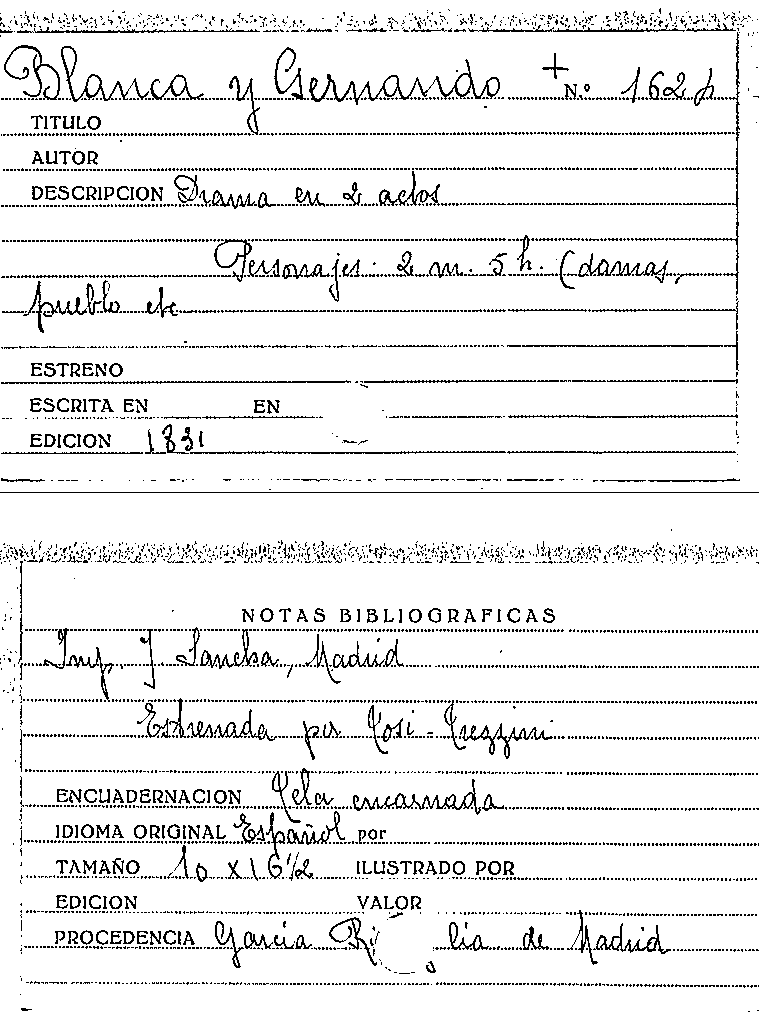 Blanca y Gernando + N.º 162 p
TITULO
AUTOR
DESCRIPCION Drama en 2 actos
Personajes: 2 m. 5 h. (damas,
pueblo etc
ESTRENO
ESCRITA EN EN
EDICION 1831
NOTAS BIBLIOGRAFICAS
Imp. J Sancha, Madrid
Estrenada por Tosi-Trezzini
ENCUADERNACION Tela encarnada
IDIOMA ORIGINAL Español por
TAMAÑO 10 x 16 1/2 ILUSTRADO POR
EDICION VALOR
PROCEDENCIA Garcia lia de Madrid